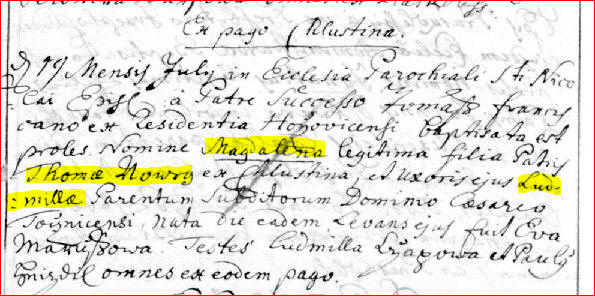 Ex pago Chlustina.
D 19 Mensys July in Ecclesia Parochiali Sti Nico
lai Epis. à Patre Successo Tomaß francis
cano ex Residentia Horovicensi baptisata est
proles Nomine Magdalena legitima filia Patris
Thomæ Nowry ex Chlustina, et uxoris ejus Lud
millæ Parentum Subditorum Dominio Cæsareo
Tocznicensi, nata die eadem Levans ejus fuit Eva
Testes Ludmilla et Pauly
omnes ex eodem pago.